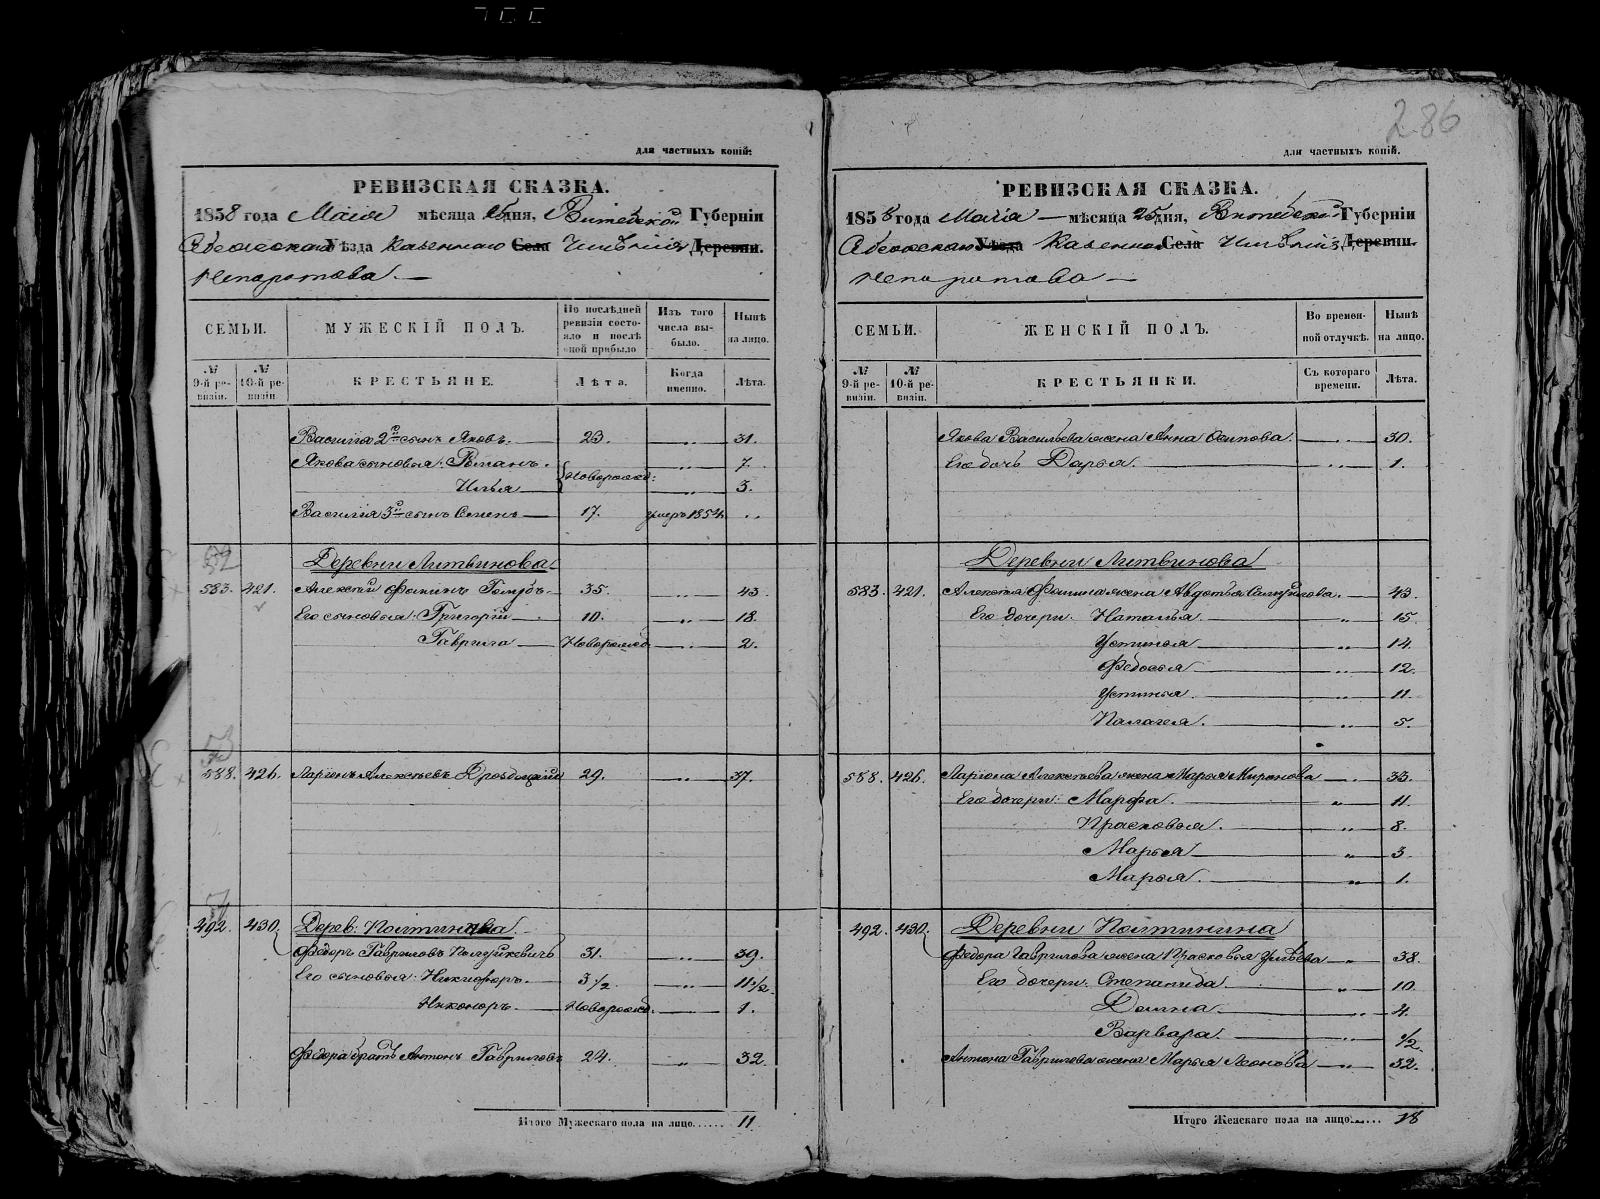 для частныхъ копій.
РЕВИЗСКАЯ СКАЗКА.
1858 года Маія мѣсяца 25 дня, Витебской Губерніи
Себежскаго Уѣзда Казеннаго Села Имѣнія Деревни.
Непоротова.
СЕМЬИ. МУЖЕСКІЙ ПОЛЪ. По послѣдней ревизіи состояло и послѣ оной прибыло Изъ того числа выбыло. Нынѣ на лицо.
№ 9-й ревизіи. № 10-й ревизіи КРЕСТЬЯНЕ. Лѣта. Когда именно. Лѣта.
Василія 2й сынъ Яковъ. 23. „ 31.
Якова сыновья: Романъ. Новорожд: „ 7.
Илья „ 3.
Василія 3й сынъ Семенъ 17. умеръ 1854. „
52
Деревни Литвинова
583. 421. Алексѣй Фоминъ Голубъ. 35. „ 43.
Его сыновья: Григорій 10. „ 18.
Гаврила Новорожд. „ 2.
53
588. 426. Ларіонъ Алексѣевъ Дроздецкій 29. „ 37.
54
492. 430. Дерев: Полтинина
Федоръ Гавриловъ 31. „ 39.
Его сыновья: Никифоръ. 3 1/2. „ 11 1/2.
Никоноръ. Новорожд. „ 1.
Федора братъ Антонъ Гавриловъ 24. „ 32.
Итого Мужескаго пола на лицо...... 11
286
для частныхъ копій.
РЕВИЗСКАЯ СКАЗКА.
1858 года Маія мѣсяца 25 дня, Витебской Губерніи
Себежскаго Уѣзда Казеннаго Села Имѣнія Деревни.
Непоротова
СЕМЬИ. ЖЕНСКІЙ ПОЛЪ. Во временной отлучкѣ. Нынѣ на лицо.
№ 9-й ревизіи. № 10-й ревизіи. КРЕСТЬЯНКИ. Съ котораго времени. Лѣта.
Якова Васильева жена Анна Осипова. „ 30.
Его дочь Дарья. „ 1.
Деревни Литвинова
583. 421. Алексѣя Фомина жена Авдотья „ 43.
Его дочери: Наталья „ 15.
Устинья „ 14.
Федосья „ 12.
Устинья. „ 11.
Палагея. „ 5.
588. 426. Ларіона Алексѣева жена Марья Миронова „ 33.
Его дочери: Марфа. „ 11.
Прасковья. „ 8.
Марья „ 3.
Марья. „ 1.
492. 430. Деревни Полтинина
Федора Гаврилова жена Прасковья „ 38.
Его дочери: Степанида „ 10.
Домна „ 4.
Варвара. „ 1/2.
Антона Гаврилова жена Марья Леонова „ 32.
Итого Женскаго пола на лицо...... 18